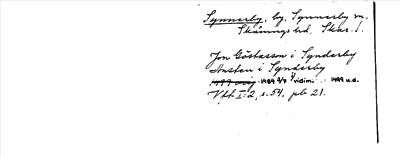 Synnerby, by, Synnerby sn,
Skånings hd, Skar. l.
Jon Göstasson i Synderby
Hosten i Synderby
1484 9/7 vidim. 1499 u.d.
Vfb I:2, s. 54, pb 21.